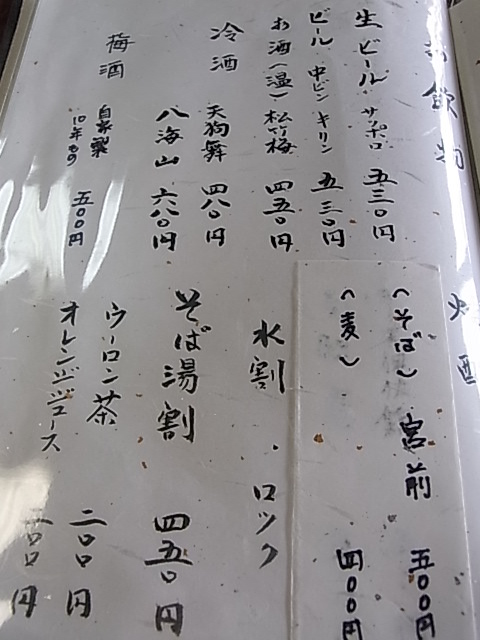 お飲物
生ビール サッポロ 五三〇円
ビール 中ビン キリン 五三〇円
お酒(温) 松竹梅 四五〇円
冷酒 天狗舞 四八〇円
八海山 六八〇円
梅酒 自家製 10年もの 五〇〇円
焼酎
(そば) 宮前 五〇〇円
(麦) 四〇〇円
水割・ロック
そば湯割 四五〇円
ウーロン茶 二〇〇円
オレンジジュース 二〇〇円